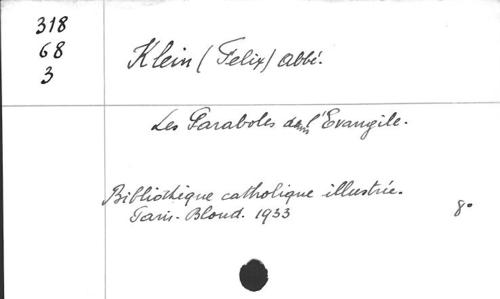 318
68
3
Klein (Felix) Abbé.
Les Paraboles dans l'Evangile.
Bibliothèque catholique illustrée.
Paris. Bloud. 1933 8°